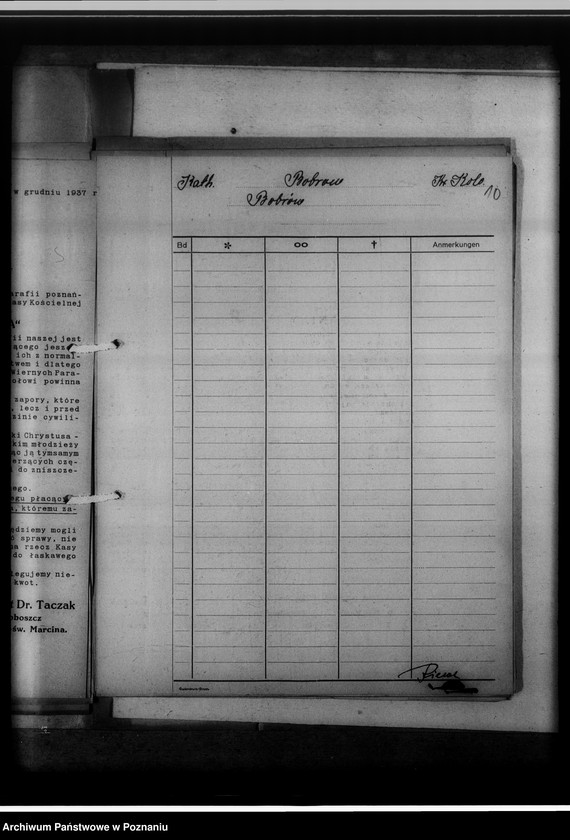 w grudniu 1937 r
rafii poznań-
asy Kościelnej
A"
ii naszej jest
ącego jesz
ich z normal-
twem i dlatego
wiernych Para-
ołowi powinna
zapory, które
, lecz i przed
zinie cywili-
ki Chrystusa -
kim młodzieży
ąc ją tymsamym
erzących czę-
i do zniszcze-
ego.
egu płacąc
, któremu za-
ędziemy mogli
sprawy, nie
na rzecz Kasy
do łaskawego
egujemy nie-
kwot.
Dr. Taczak
oboszcz
św. Marcina.
Kath. Bobrow Kr Kolo 10
Bobrów
Bd * oo † Anmerkungen
Archiwum Państwowe w Poznaniu